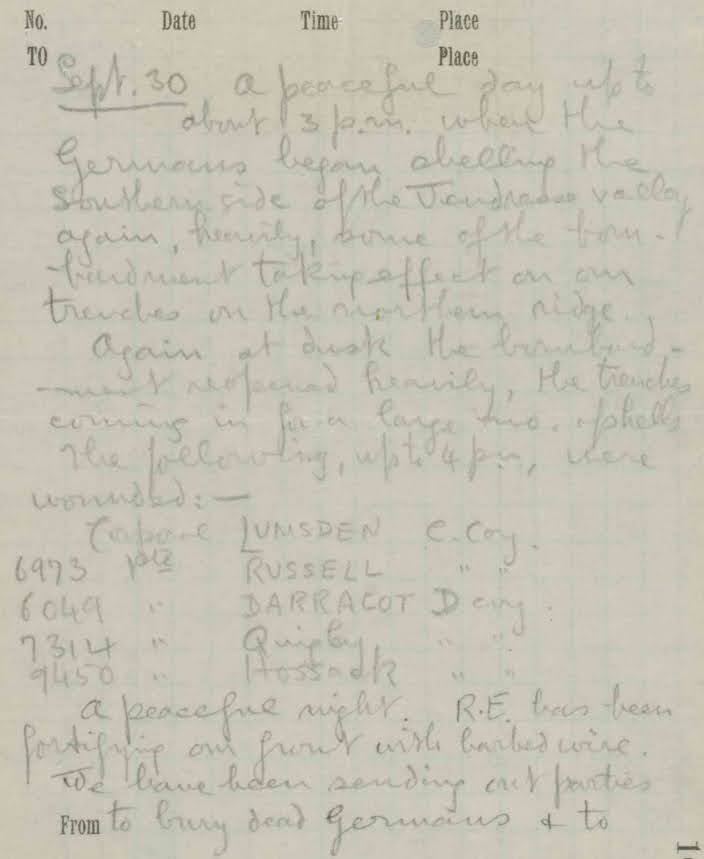 No. Date Time Place
TO Place
Sept. 30 A peaceful day up to
about 3 p.m. when the
Germans began shelling the
Southern side of the Vendresse valley
again, heavily, some of the bom-
-bardment taking effect on our
trenches on the northern ridge.
Again at dusk the bombard-
-ment reopened heavily, the trenches
coming in for a large no. of shells
The following, up to 4 p.m, were
wounded:—
Corporal LUMSDEN C. Coy.
6973 Pte RUSSELL " "
6049 " DARRACOT D Coy.
7314 " Quigley " "
9450 " Hossack " "
A peaceful night. R.E. has been
fortifying our front with barbed wire.
We have been sending out parties
From to bury dead Germans & to